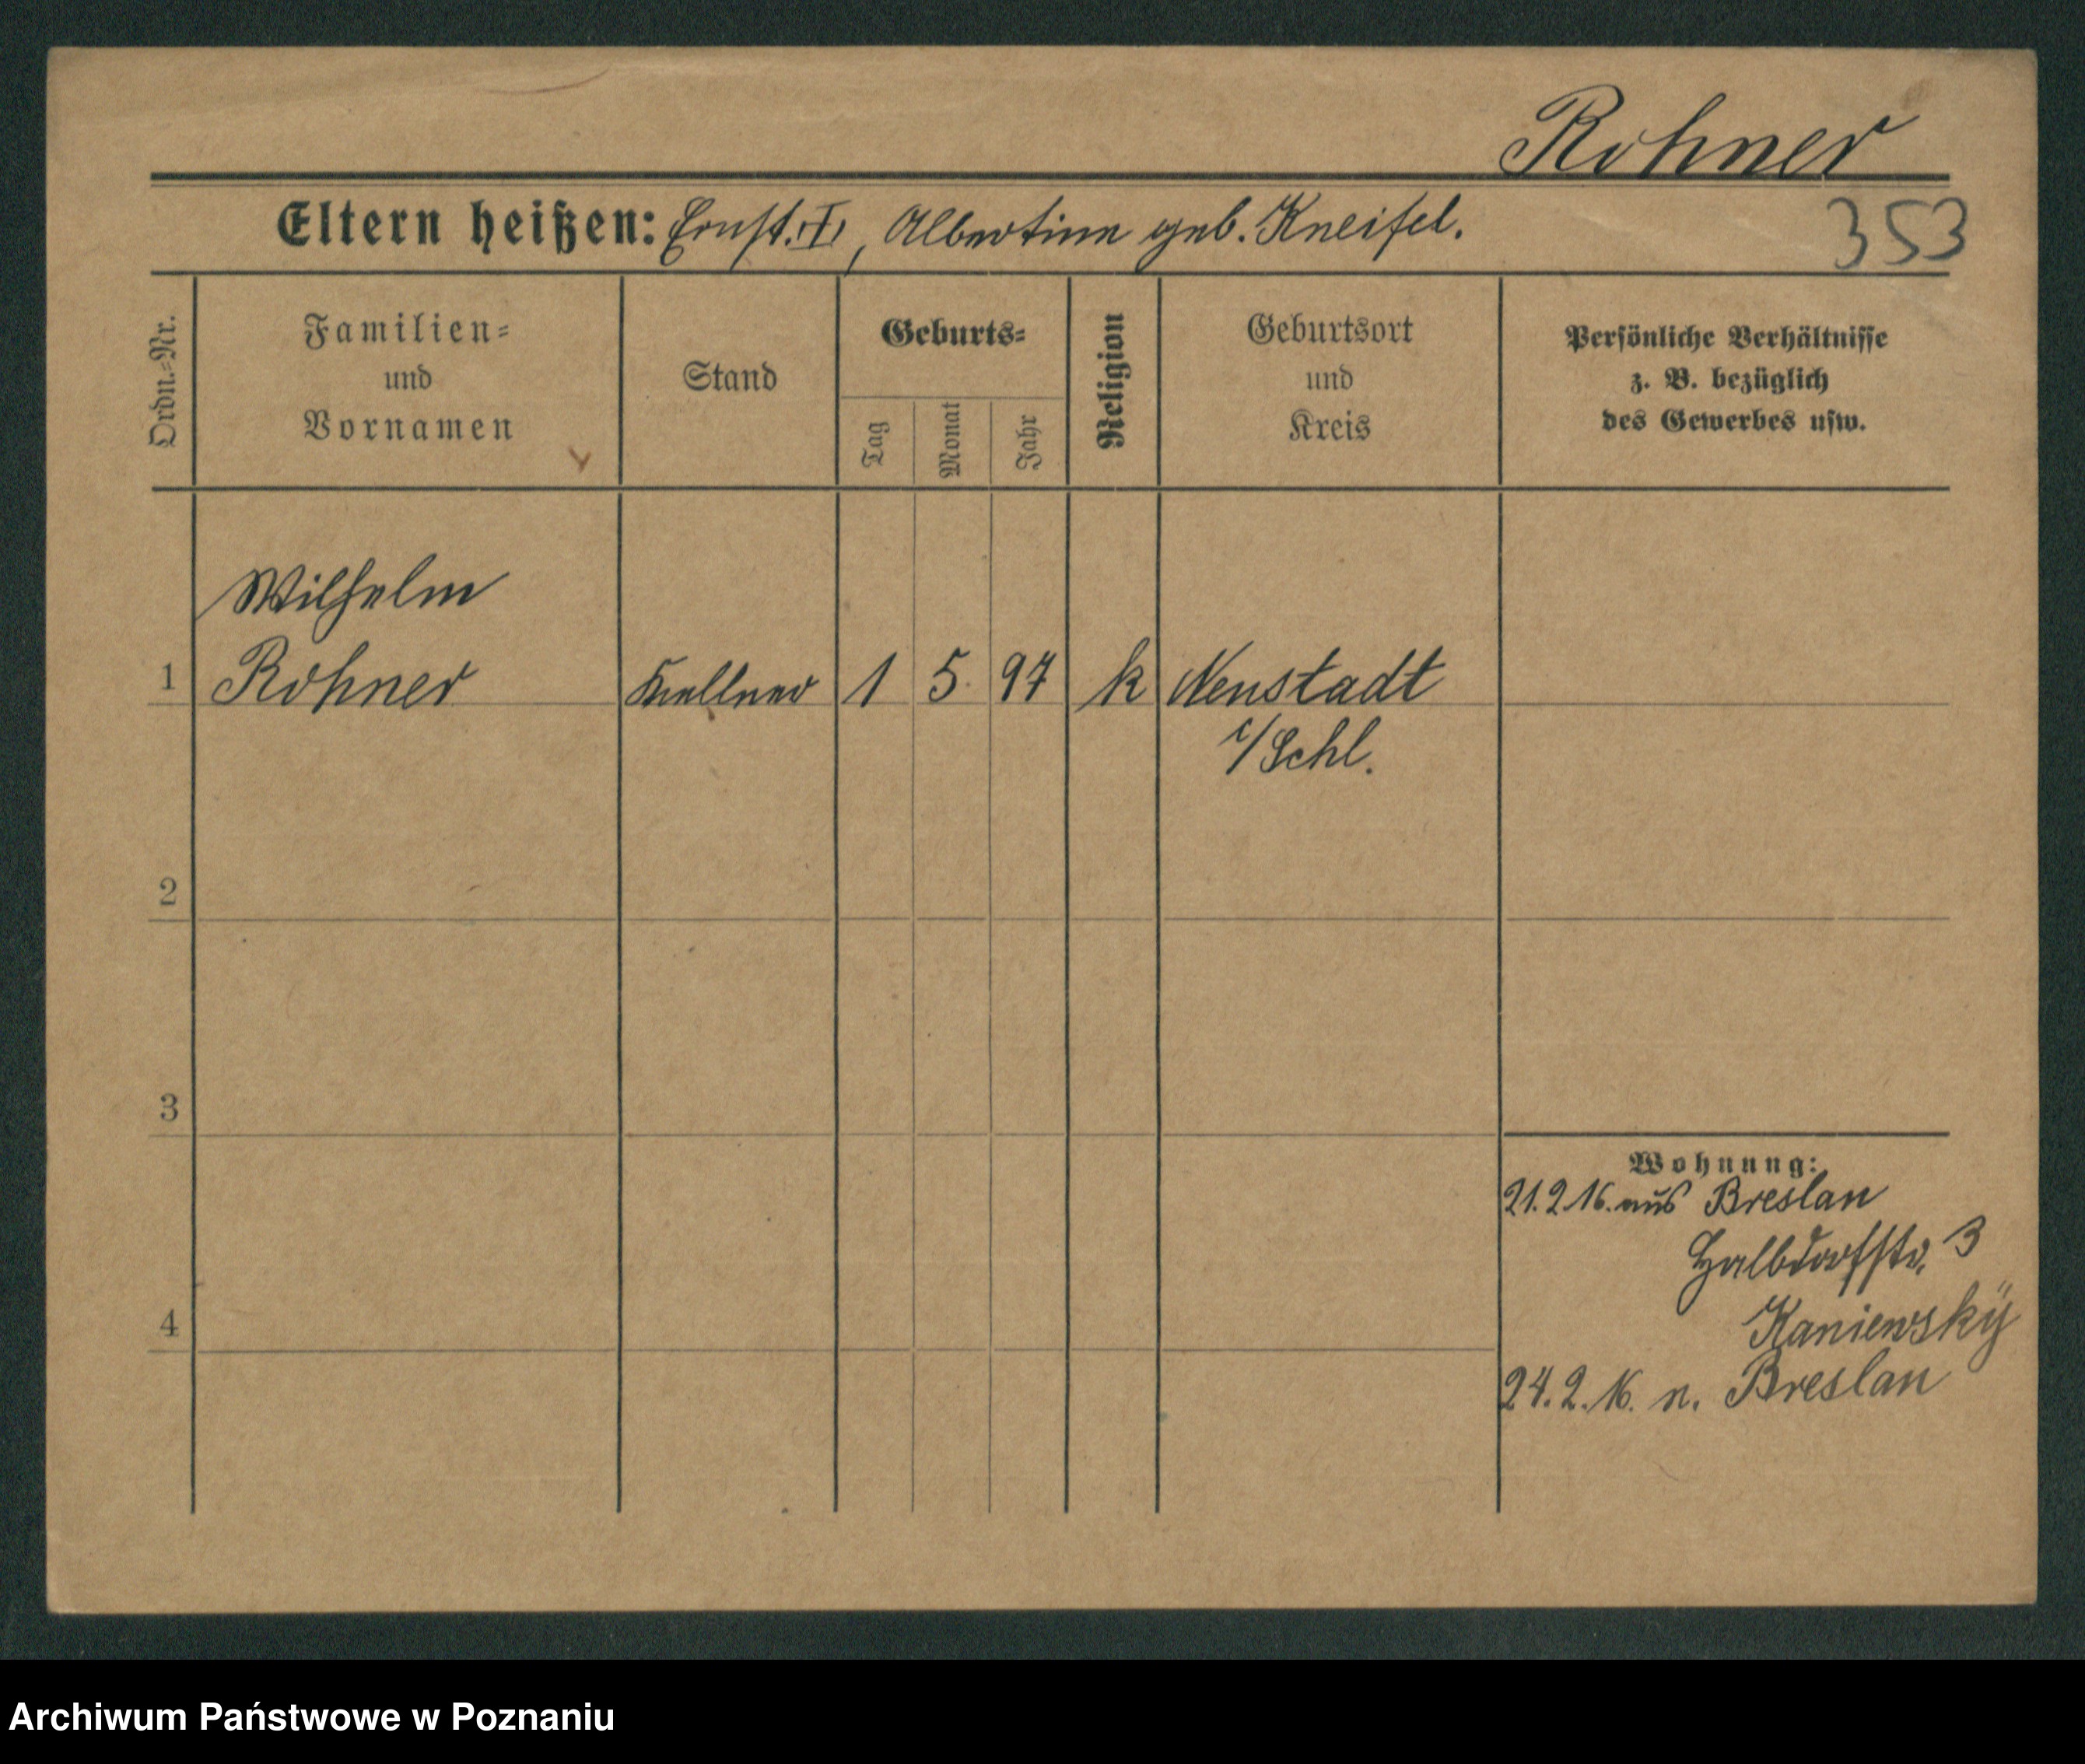 Rohner
Eltern heißen: Ernst. I, Albertine geb. Kneifel.
353
Ordn.=Nr.
Familien=
und
Vornamen
Stand
Geburts=
Tag
Monat
Jahr
Religion
Geburtsort
und
Kreis
Persönliche Verhältnisse
z. B. bezüglich
des Gewerbes usw.
Wilhelm
1 Rohner Kellner 1 5. 97 k Neustadt
i/Schl.
2
3
Wohnung:
21.2.16. aus Breslau
Halbdorfstr. 3
Kaniewsky
4
24.2.16. n. Breslau
Archiwum Państwowe w Poznaniu